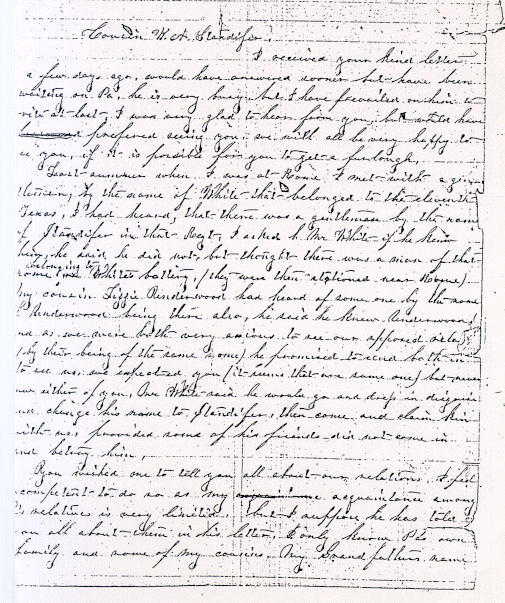 Cousin W. A. Standifer,
I received your kind letter
a few days ago, would have answered sooner but have been
waiting on Pa, he is very busy but I have prevailed on him to
rite at last, I was very glad to hear from you, but would have
preferred seeing you, we will all be very happy to
ee you, if it is possible for you to get a furlough,
Last summer when I was at Rome I met with a gen
tleman, by the name of White that belonged to the eleventh
Texas, I had heard, that there was a gentleman by the name
of Standifer in that Regt, I asked Mr White if he knew
him, he said he did not, but thought there was a man of that
name belonging to White's battery, (they were then stationed near Rome)
my cousin Lizzie Underwood had heard of some one by the name
Underwood being there also, he said he knew Underwood,
nd as we were both very anxious to see our supposed rela
(by their being of the same name) he promised to send both in
to see us, we expected you (it seems that we same one) but never
saw either of you, Mr White said he would go and dress in disguise
and change his name to Standifer, then come and claim kin
with us, provided some of his friends did not come in
and betray him,
You wished me to tell you all about our relations. I feel
competent to do so as my acquaintance among
Pa's relatives is very limited. But I suppose he has told
you all about them in his letter, I only know Pa's own
family and some of my cousins. My Grand father's name